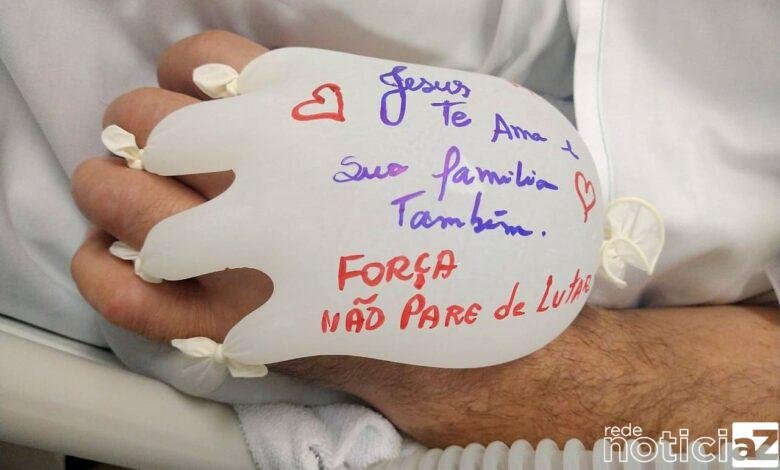 Jesus
Te Ama e
Sua família
Também.
FORÇA
NÃO PARE de LUTAR
rede
noticiaz